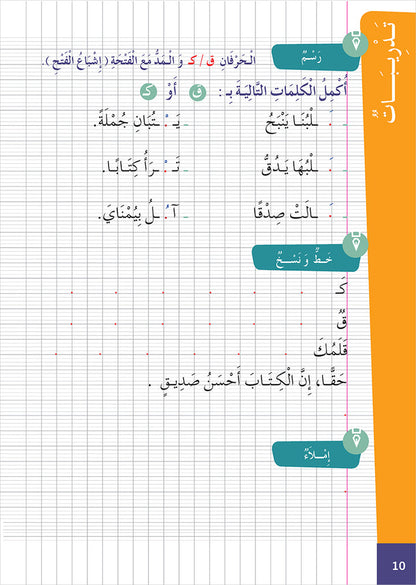 تَدْرِيبَاتٌ
رَسْمٌ
الْحَرْفَانِ ق / كـ وَ الْمَدُّ مَعَ الْفَتْحَةِ ( إِشْبَاعُ الْفَتْحِ ).
أُكْمِلُ الْكَلِمَاتِ التَّالِيَةَ بِـ : ق أَوْ كـ
- . ـلْبُنَا يَنْبَحُ - يَـ . ـتُبَانِ جُمْلَةً.
- . ـلْبُهَا يَدُقُّ - تَـ . ـرَأُ كِتَابًا.
- . ـالَتْ صِدْقًا - آ . ـلُ بِيُمْنَايَ.
خَطٌّ وَ نَسْخٌ
كَـ . . . . . . .
قٌ . . . . . .
قَلَمُكَ . . . . . .
حَقًّا، إِنَّ الْكِتَابَ أَحْسَنُ صَدِيقٍ .
.
إِمْلَاءٌ
.
10